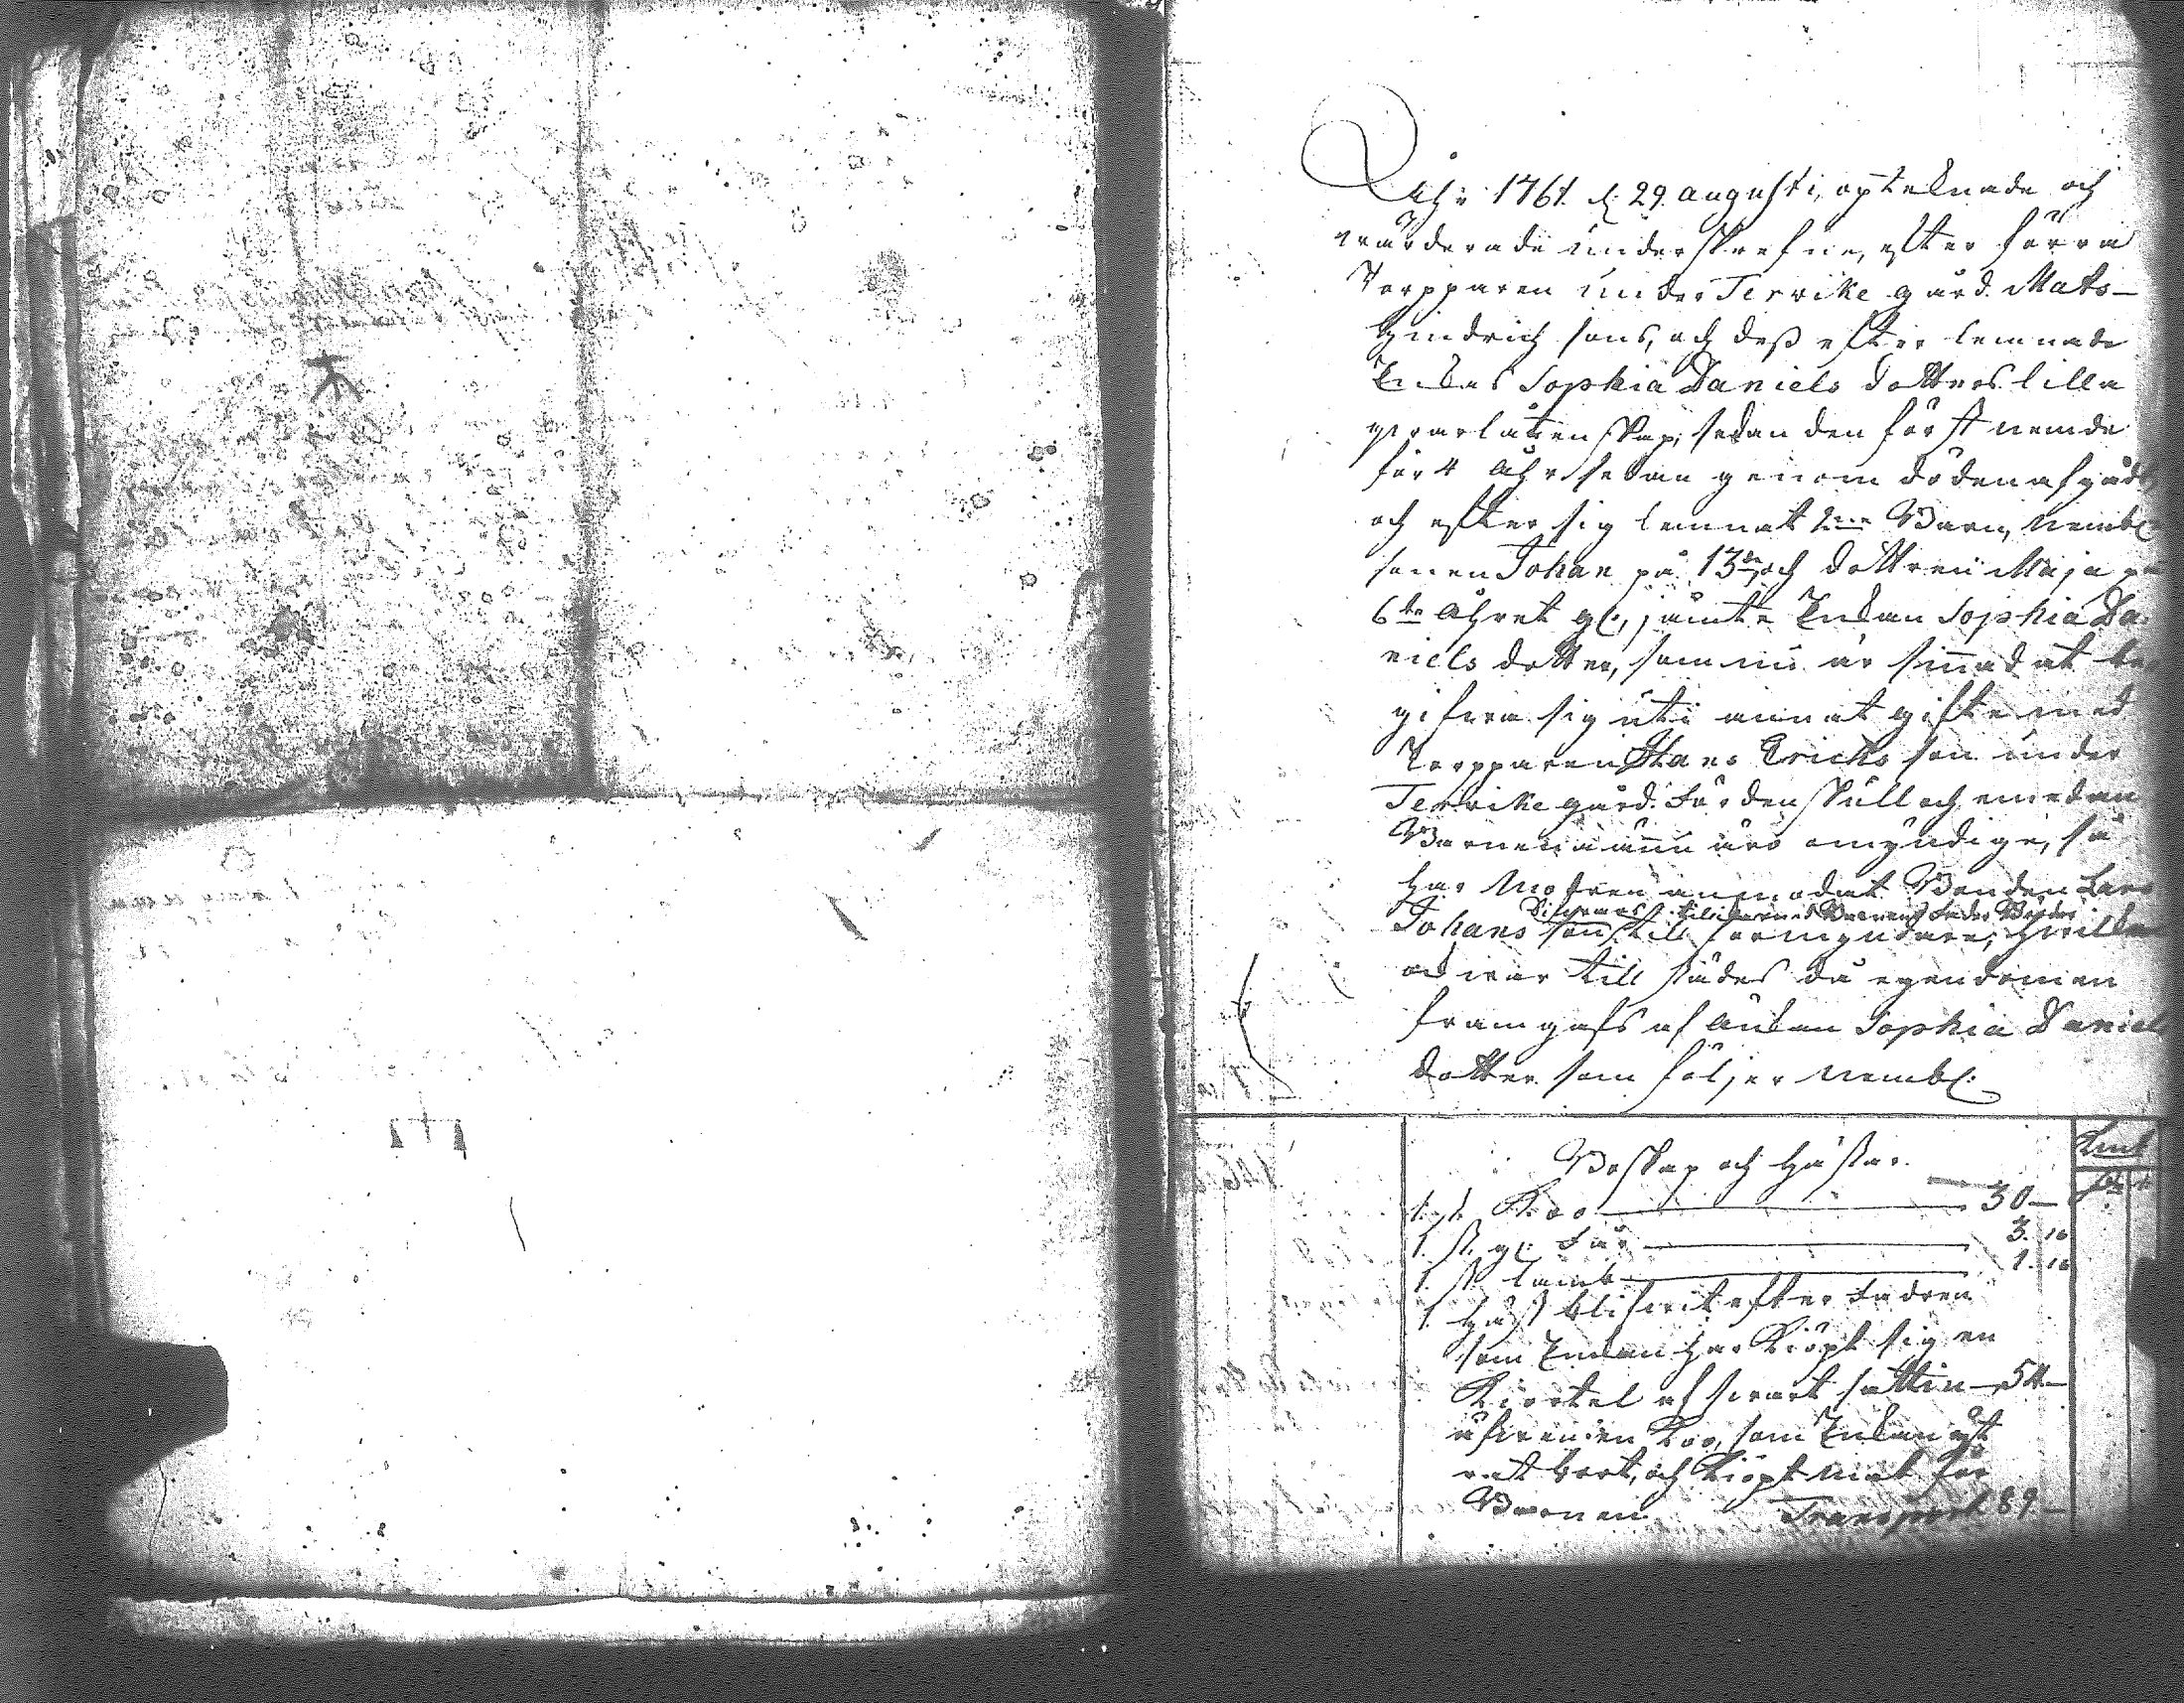 Åhr 1761 d. 29 augusti, opteknade och
wärderade underskrefne, efter förra
Torpparen under Terwike gård. Mats
Hindrich sons, och dess efter lemnade
Enkas Sophia Daniels dotters lilla
qwarlåtenskap, sedan den först nemde
för 4 Åhr sedan genom döden afgådt,
och efter sig lemnat 2ne Barn, nembl.
sonen Johan på 13de och dottren Maja på
6te Åhret gl., jämte Enkan Sophia Da-
niels dotter, som nu är sinnad at be-
gifwa sig uti annat gifte med
Torpparen Hans Erichs son under
Terwike gård. För den skull och emedan
Barnen ännu äro omyndige, så
har Modren anmodat Bonden Lars
Barnens Fader Broder
Johans son till förmyndare, hwilken
od war till städes då egendomen
framgafs af Änkan Sophia Daniels
dotter som följer nembl.
Boskap och Hästar.
1. st. Koo 30 —
1. st. gl. Får 3. 16
1. st lamb 1. 16
1. Häst blifwit efter Fadren
som Enkan har Kiöpt sig en
Kiortel af swart sattin — 54 —
äfwen en Koo, som Enkan
bort, och Kiöpt mat för
Barnen. Transport 89 —